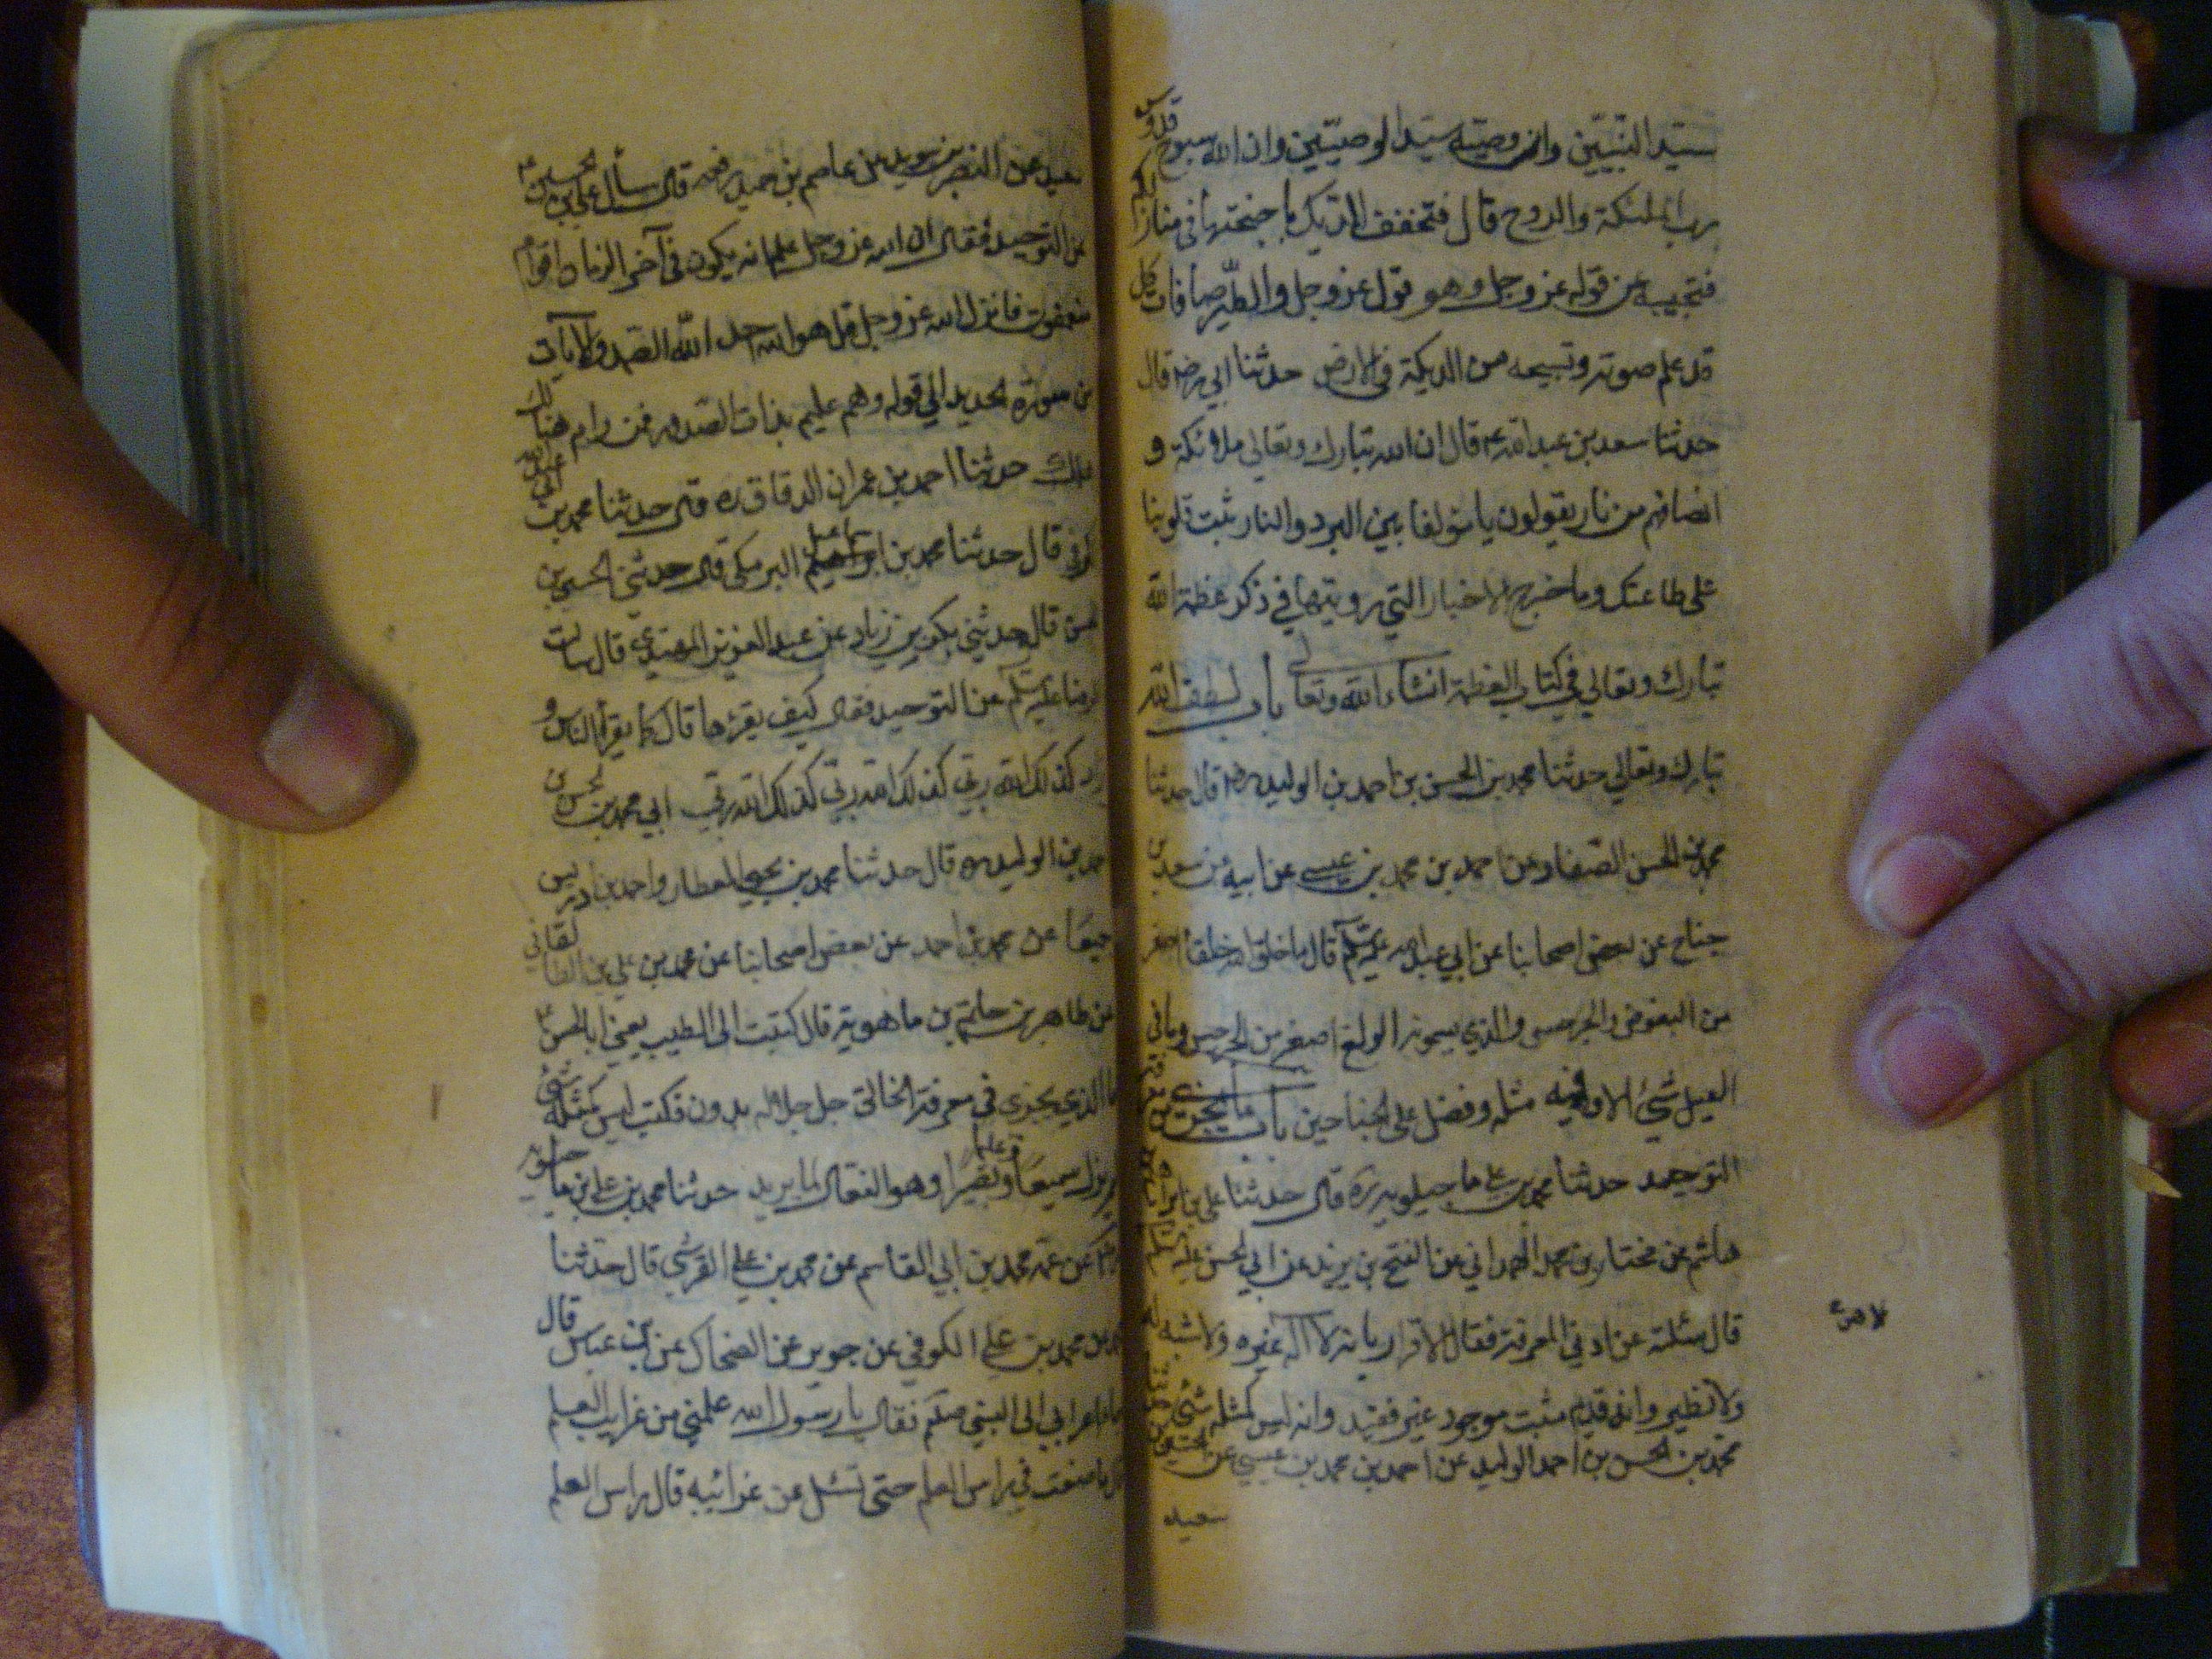 سيّد النّبيّين وان وصيّه سيّد الوصيّين وان الله سبوح قدوس
رب الملئكة والروح قال فتخفق الديك باجنحتها في منازلكم
فتجيبه عن قوله عز وجل وهو قول عز وجل والطّير صافات كل
قد علم صوته وتسبيحه من الديكة في الارض حدثنا ابي رضه قال
حدثنا سعد بن عبد الله قال ان الله تبارك وتعالى ملائكة و
انصافهم من نار يقولون يا مؤلفا بين البرد والنار ثبت قلوبنا
على طاعتك وما خرج الاخبار التي رويتها في ذكر عظمة الله
تبارك وتعالى في كتاب العظمة انشاء الله وتعالى باب لطف الله
تبارك وتعالى حدثنا محمد بن الحسن بن احمد بن الوليد رضه قال حدثنا
محمد بن الحسن الصفار عن احمد بن محمد بن عيسى عن ابيه عن سعد بن
جناح عن بعض اصحابنا عن ابي عبد الله عليه السلم قال ما خلق الله خلقا اصغر
من البعوض والجرجس والذي يسمونه الولغ اصغر من الجرجس وما في
الفيل شيء الا وفيه مثله وفضل على الجناحين باب ما يجزي من معرفة
التوحيد حدثنا محمد بن علي ماجيلويه ره قال حدثنا علي بن ابراهيم
هاشم عن مختار بن محمد الهمداني عن الفتح بن يزيد عن ابي الحسن عليه السلم
قال سئلته عن ادنى المعرفة فقال الاقرار بانه لا اله غيره ولا شبه له
ولا نظير وانه قديم مثبت موجود غير فقيد وانه ليس كمثله شيء
محمد بن الحسن بن احمد الوليد عن احمد بن محمد بن عيسى عن الحسين بن
سعيد
سعيد عن النضر بن سويد عن عاصم بن حميد رفعه قال سأل علي بن الحسين
عن التوحيد فقال ان الله عز وجل علم انه يكون في آخر الزمان اقوام
متعمقون فانزل الله عز وجل قل هو الله احد الله الصمد والآيات
من سورة الحديد الى قوله وهو عليم بذات الصدور فمن رام هنالك
هلك حدثنا احمد بن عمران الدقاق ره قال حدثنا محمد بن ابي عبد الله
الكوفي قال حدثنا محمد بن اسماعيل البرمكي قال حدثني الحسين بن
الحسن قال حدثني بكر بن زياد عن عبد العزيز المهتدي قال سالت
الرضا عليه السلم عن التوحيد فقال كيف يقرؤها قال كما يقرأ الناس و
زاد كذلك الله ربي كذلك الله ربي كذلك الله ربي ابي محمد بن الحسن بن
احمد بن الوليد ره قال حدثنا محمد بن يحيى العطار واحمد بن ادريس
جميعا عن محمد بن احمد عن بعض اصحابنا عن محمد بن علي بن الطالقاني
عن طاهر بن حاتم بن ماهويه قال كتبت الى الطيب يعني ابا الحسن
ما الذي يجزى في معرفة الخالق جل جلاله بدون فكتب ليس كمثله شيء
لم يزل سميعا وعليما وبصيرا وهو الفعال لما يريد حدثنا محمد بن علي بن ماجيلويه
عن عمه محمد بن ابي القاسم عن محمد بن علي القرشي قال حدثنا
محمد بن علي الكوفي عن جويبر عن الضحاك عن ابن عباس قال
جاء اعرابي الى النبي صلم فقال يا رسول الله علمني من غرايب العلم
قال ما صنعت في راس العلم حتى تسئل عن غرائبه قال راس العلم